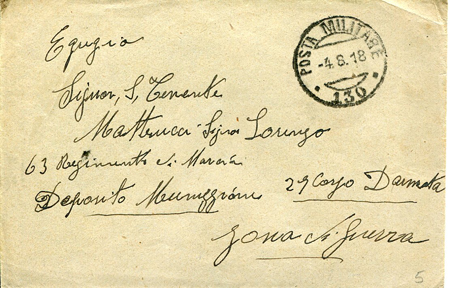 Egregio
POSTA MILITARE
-4.8.18
130
Signor S. Tenente
Matteucci Lorenzo
63 Regimento di Marcia
Deposito Munizioni 29 Corpo Darmata
Zona di Guerra
5